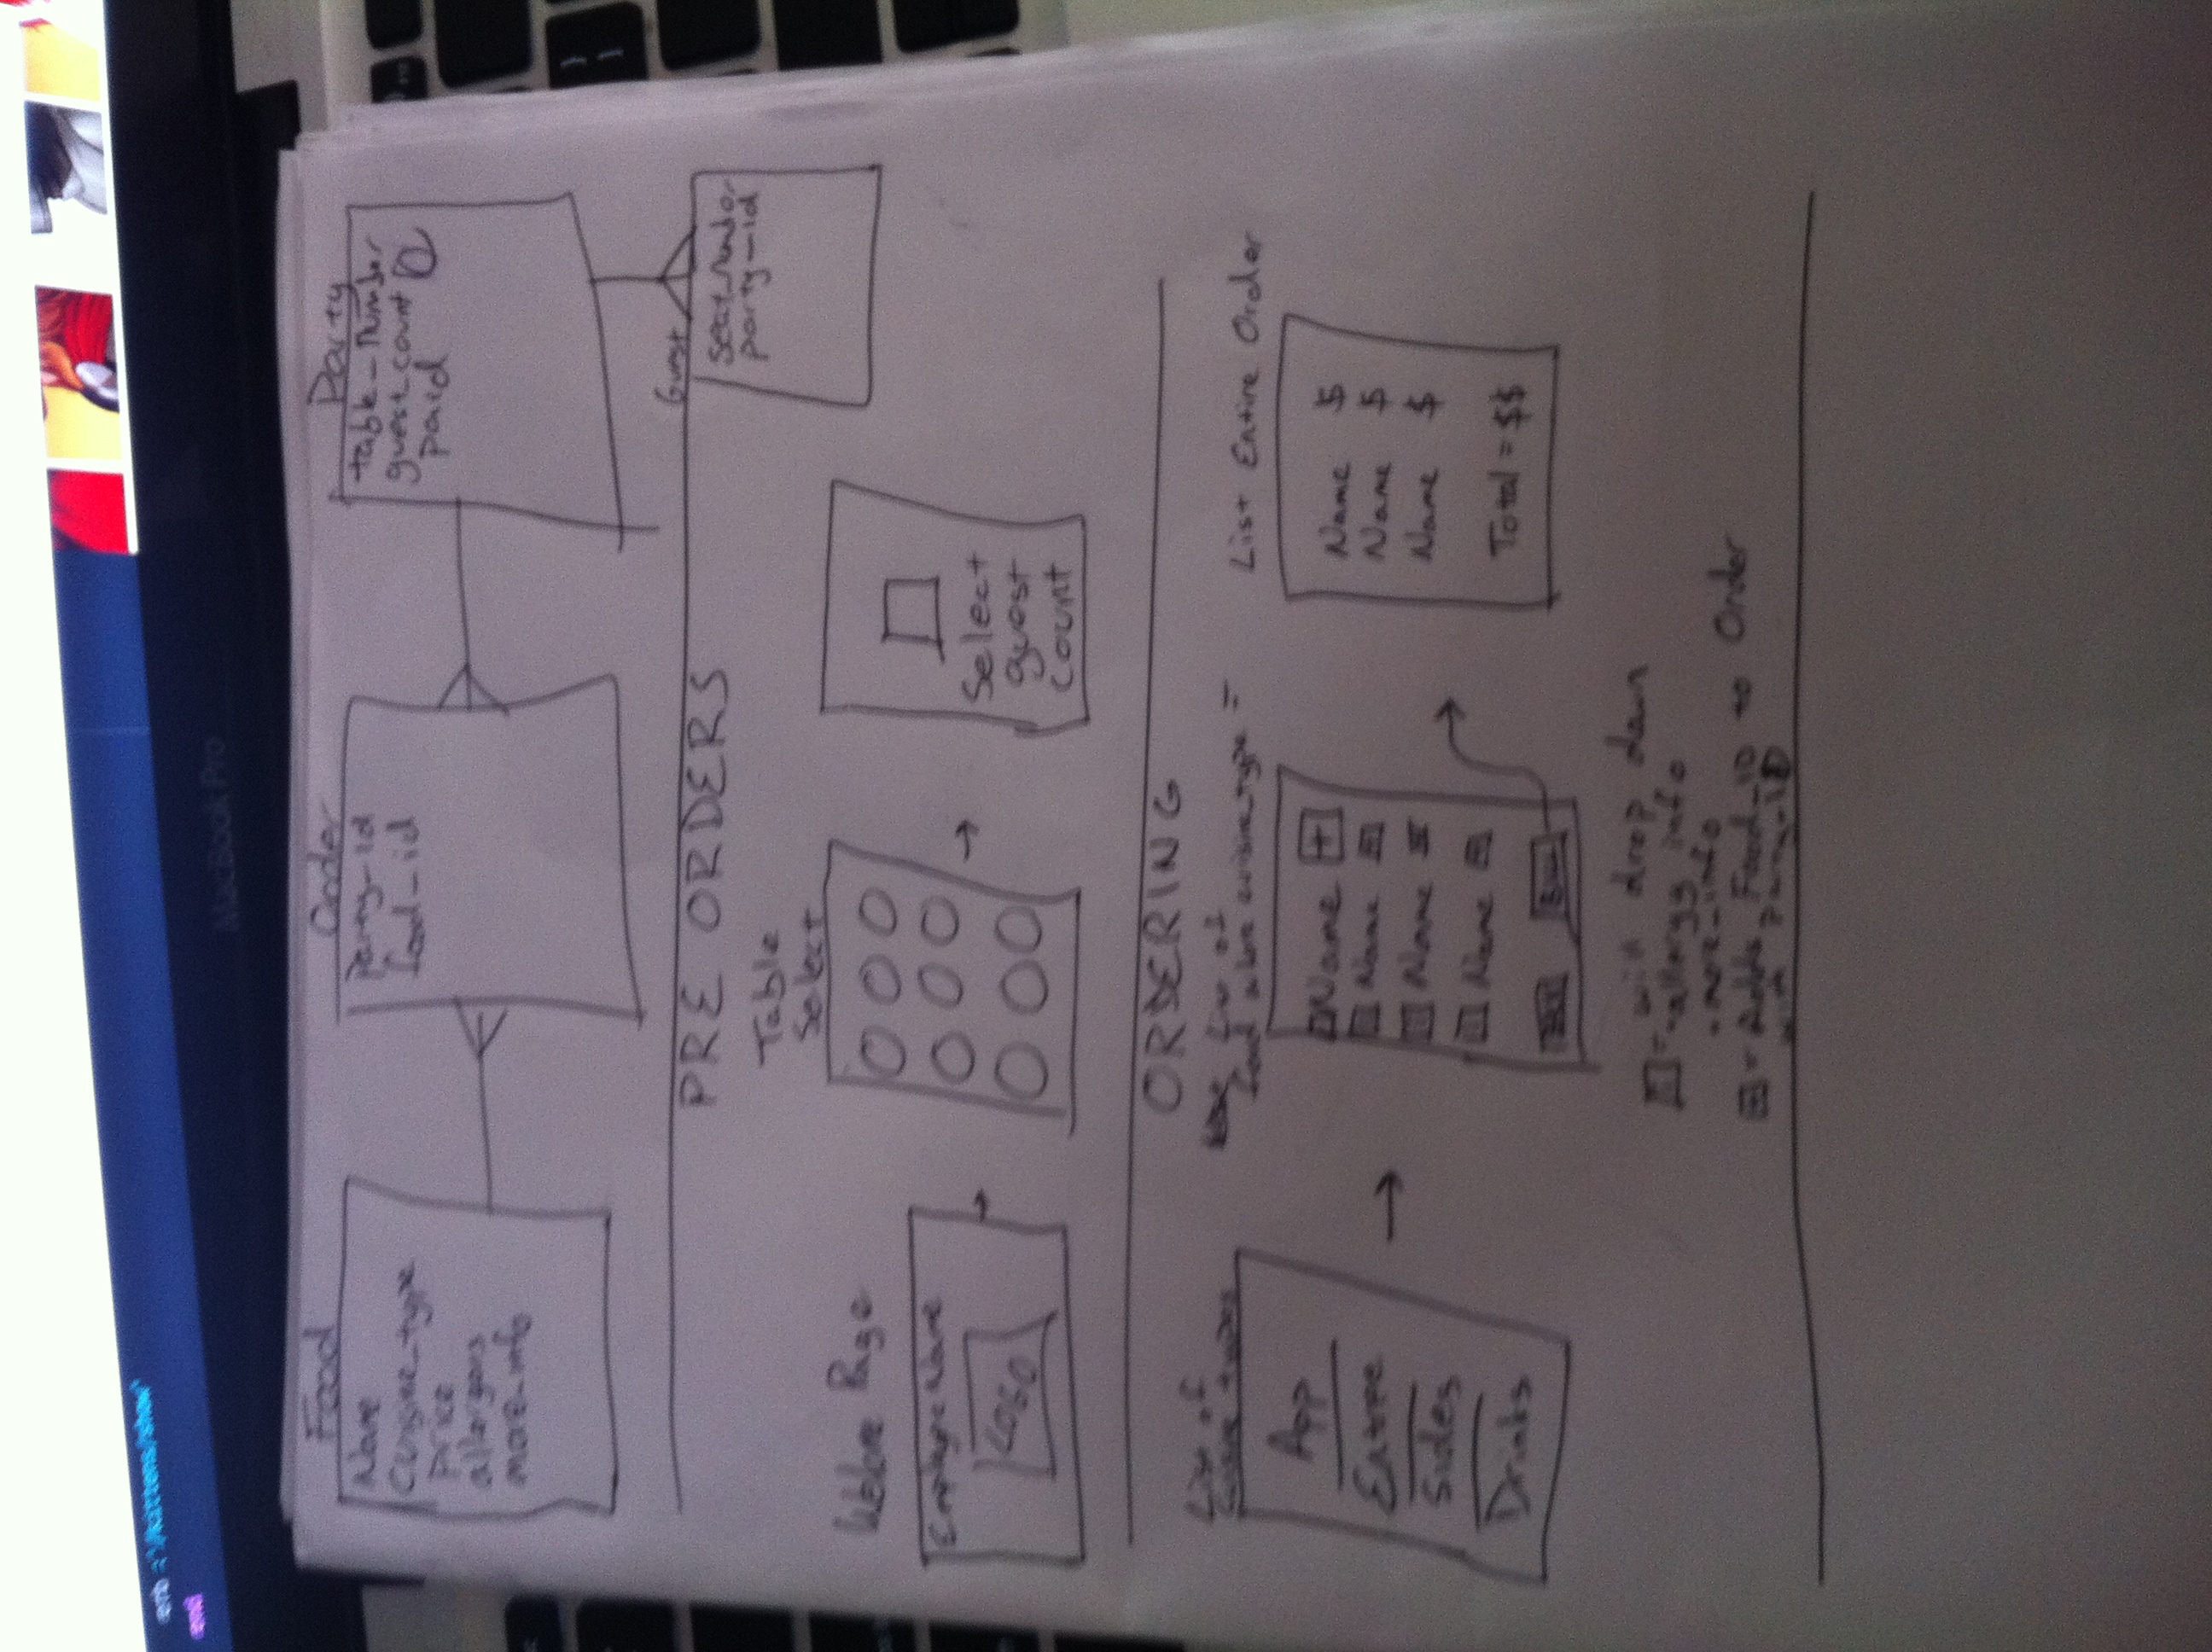 erb :'/kittens/show'
end
MacBook Pro
Food
Name
Cuisine_type
price
allergens
more_info
Order
party_id
food_id
Party
table_number
guest_count
paid
Guest
seat_number
party_id
PRE ORDERS
Welcome Page
Employee Name
LOGO
Table
Select
Select
guest
count
ORDERING
List of
Cuisine types
App
Entree
Sides
Drinks
List of
food where cuisine_type =
Name +
Name
Name
Name
List Entire Order
Name $
Name $
Name $
Total = $$
= will drop down
- allergy info
- more_info
= Adds Food_ID to Order
with party_ID